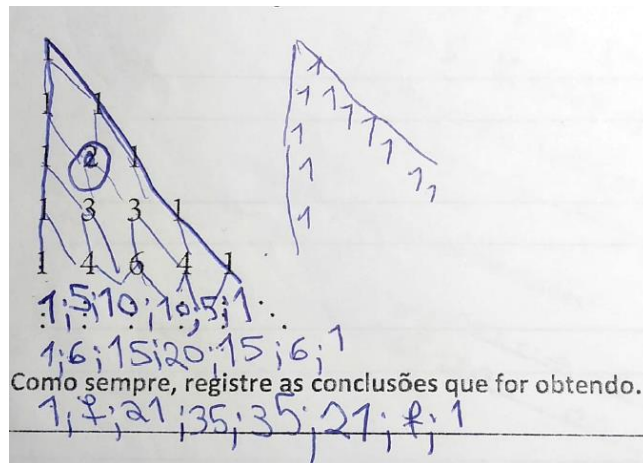 1
1 1
1 2 1
1 3 3 1
1 4 6 4 1
1;5;10;10;5;1
1;6;15;20;15;6;1
Como sempre, registre as conclusões que for obtendo.
1;7;21;35;35;21;7;1
1
1 1
1 1
1 1
1 1
1 1